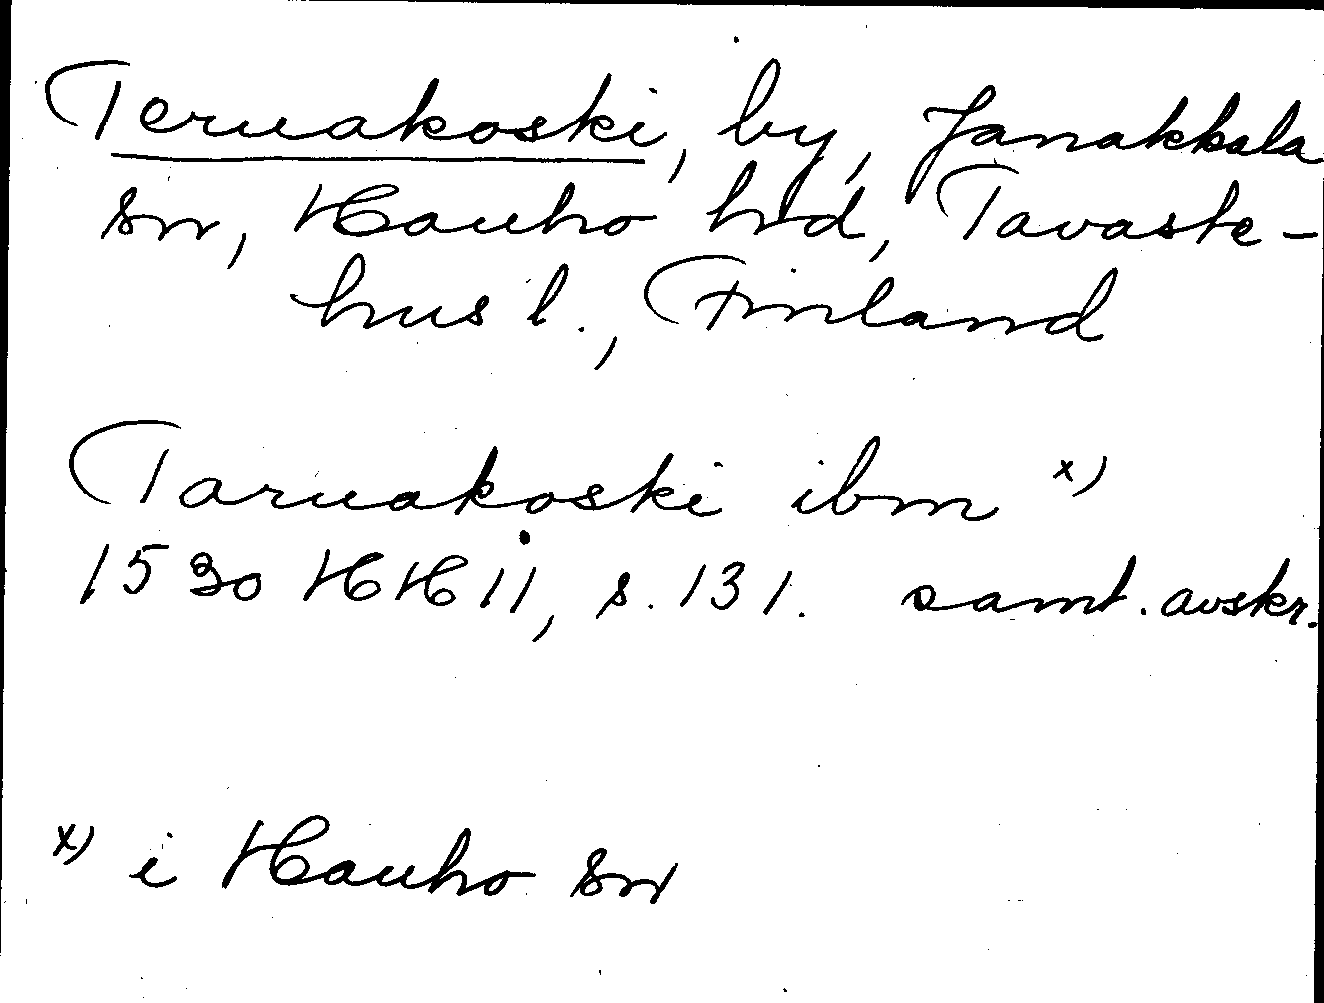 Teruakoski, by, Janakkala
sn, Hauho hrd, Tavaste-
hus l., Finland
Taruakoski ibm x)
1530 HH II, s. 131. samt. avskr.
x) i Hauho sn